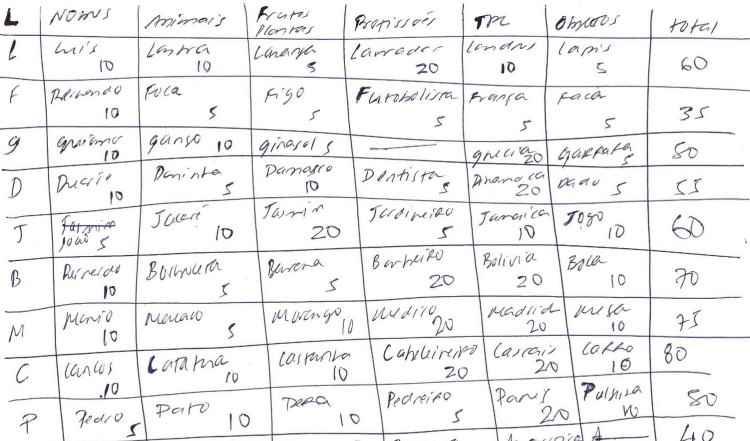 L Nomes Animais Frutos Plantas Profissões TPL Objectos total
L Luís 10 Lontra 10 Laranja 5 Lavrador 20 Londres 10 Lapis 5 60
F 10 Foca 5 Figo 5 Futebolista 5 França 5 Faca 5 35
g 10 ganso 10 girasol 5 — grecia 20 garrafa 5 50
D Duarte 10 Doninha 5 Damasco 10 Dentista 5 Dinamarca 20 Dado 5 55
J João 5 Jacaré 10 Jasmin 20 Jardineiro 5 Jamaica 10 Jogo 10 60
B 10 5 Banana 5 Barbeiro 20 Bolivia 20 Bola 10 70
M Mario 10 Macaco 5 Morango 10 Medico 20 Madrid 20 Mesa 10 75
C Carlos 10 Catatua 10 Castanha 10 Cabeleireiro 20 Cascais 20 Carro 10 80
P Pedro 5 Pato 10 Pera 10 Pedreiro 5 Paris 20 Pulseira 10 50
40